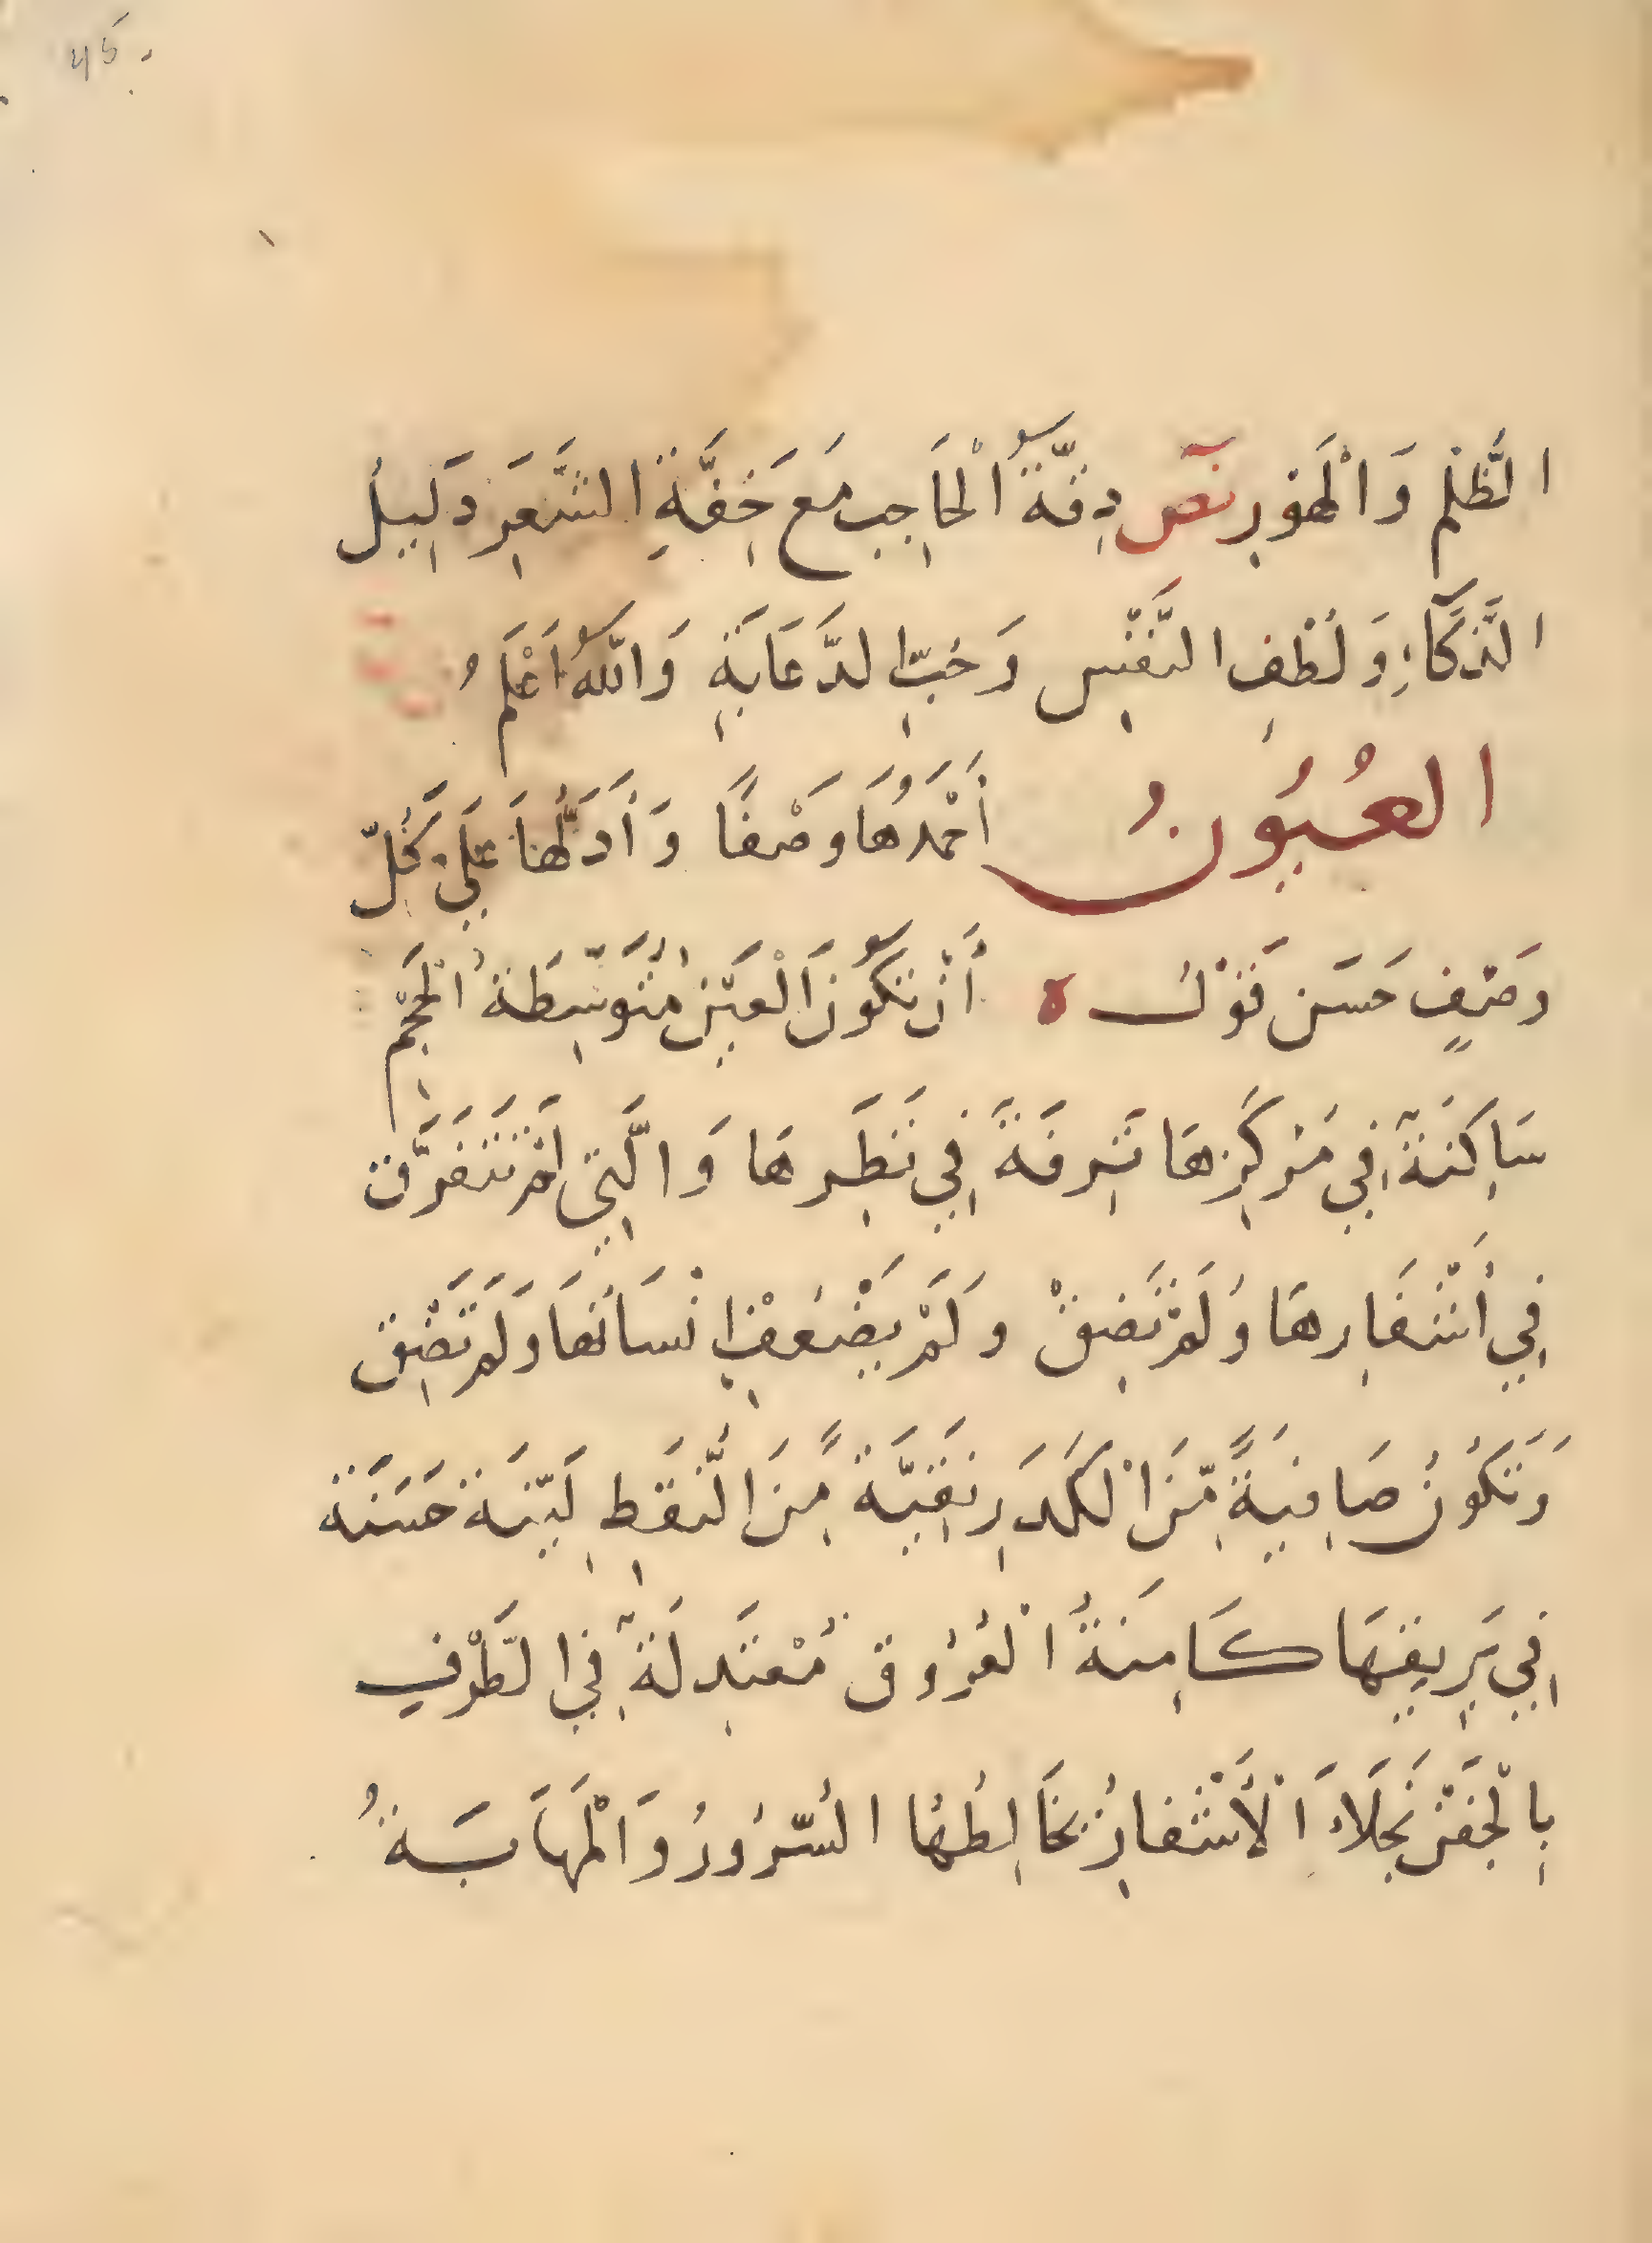 45
الظُّلْمِ وَالْهَوَرِ نص دِقَّةُ الْحَاجِبِ مَعَ خِفَّةِ الشَّعَرِ دَلِيلُ
الذَّكَاءِ وَلُطْفِ النَّفْسِ وَحُبِّ الدَّعَابَةِ وَاللَّهُ أَعْلَمُ
العُيُونُ أَحْمَدُهَا وَصْفًا وَأَدَلُّهَا عَلَى كُلِّ
وَصْفٍ حَسَنٍ قَوْلُ أَنْ تَكُونَ الْعَيْنُ مُتَوَسِّطَةُ الْحَجْمِ
سَاكِنَةٌ فِي مَرْكَزِهَا تَرِفَةً فِي نَظَرِهَا وَالَّتِي لَمْ تَتَفَرَّقْ
فِي أَشْفَارِهَا وَلَمْ تَضِقْ وَلَمْ يَضْعُفْ انْسَانُهَا وَلَمْ تَضِقْ
وَتَكُونُ صَافِيَةً مِّنَ الْكَدَرِ نَقِيَّةً مِنَ النُّقَطِ لَيِّنَة حَسَنَة
فِي بَرِيقِهَا كَامِنَةُ الْعُرُوقِ مُعْتَدِلَةٌ فِي الطَّرْفِ
بِالْجَفْنِ نَجْلَاءَ الْأَشْفَارِ يُخَالِطُهَا السُّرُورُ وَالْمَهَابَةُ